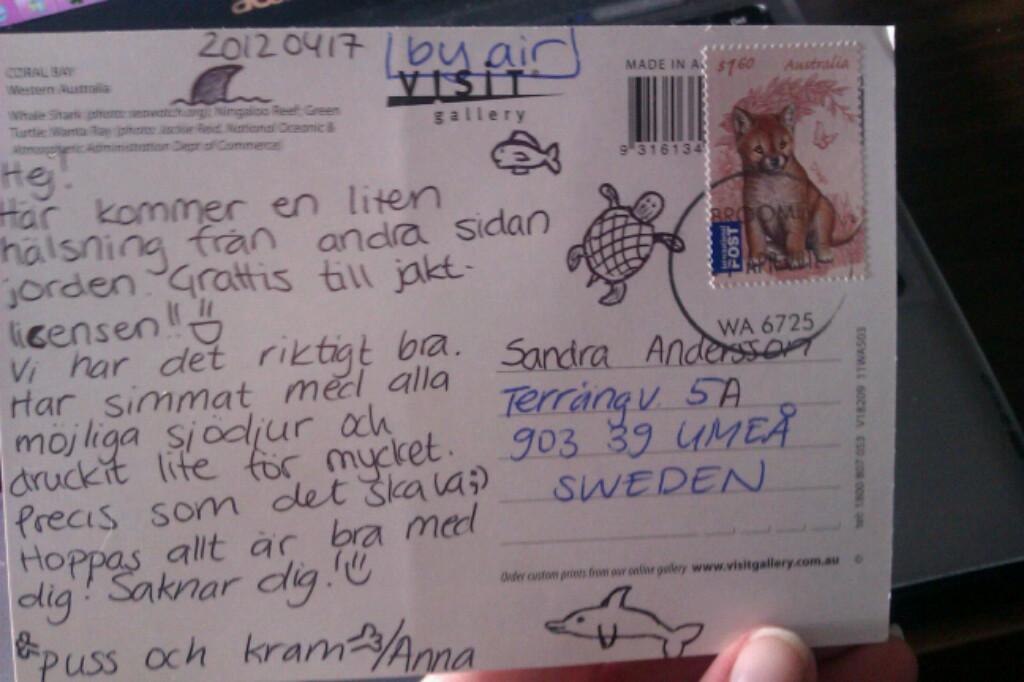 20120417
by air
CORAL BAY
Western Australia
Whale Shark (photo: seawatch.org); Ningaloo Reef; Green
Turtle; Wanta Bay (photo: Jackie Reid, National Oceanic &
Atmospheric Administration Dept of Commerce)
VISIT
gallery
MADE IN A
9 316134
$1.60 Australia
International
POST
BROOME
WA 6725
Hej!
Här kommer en liten
hälsning från andra sidan
jorden. Grattis till jakt-
licensen!!
Vi har det riktigt bra.
Har simmat med alla
möjliga sjödjur och
druckit lite för mycket.
Precis som det ska va;)
Hoppas allt är bra med
dig! Saknar dig!
puss och kram /Anna
Sandra Andersson
Terrängv. 5A
903 39 UMEÅ
SWEDEN
Order custom prints from our online gallery www.visitgallery.com.au
tel: 1800 807 053 V18209 11WA503